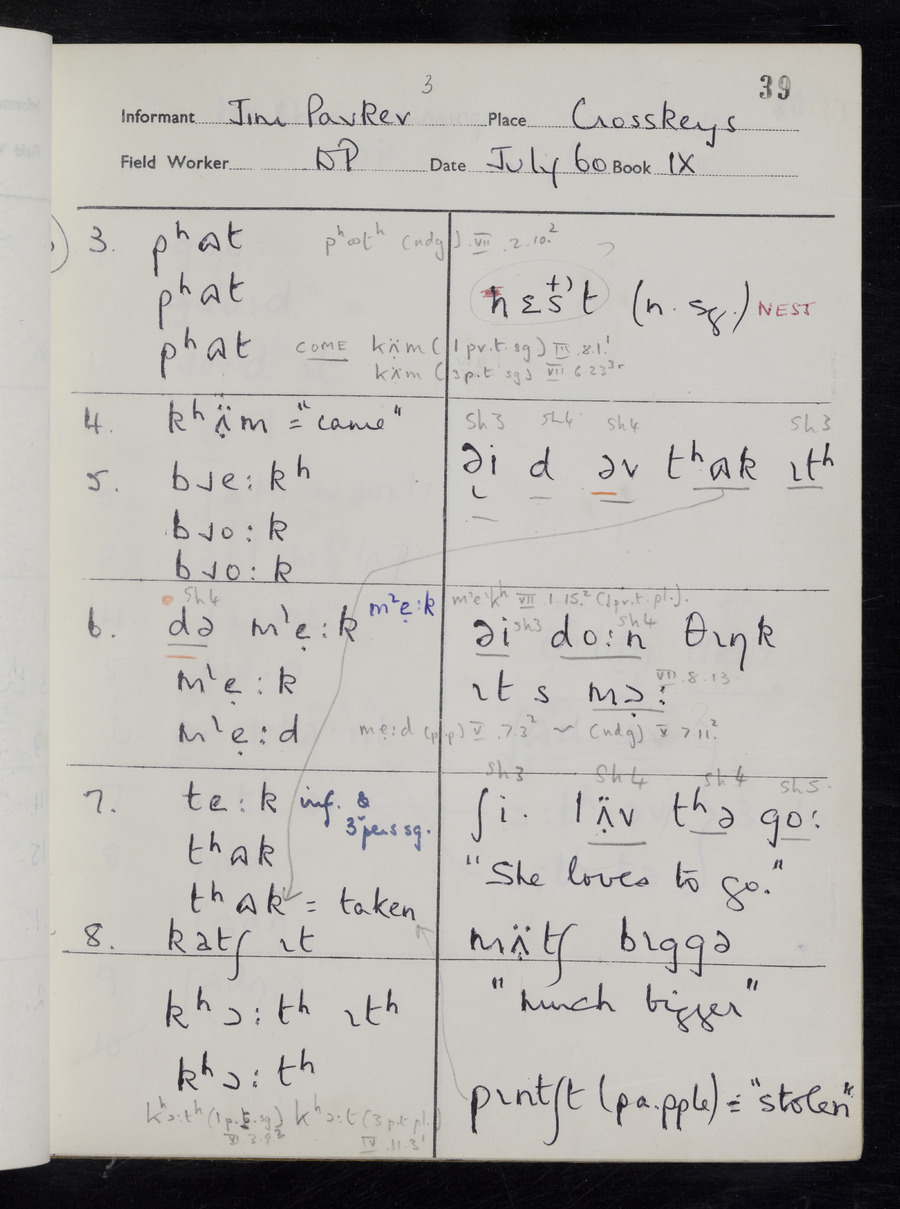 3
39
Informant Jim Parker Place Crosskeys
Field Worker DP Date July 60 Book IX
3. pʰɷt pʰɷtʰ (ndg) VII.2.10.²
pʰɷt
pʰɷt COME kʌ̈m (1 pr.t. sg) III.8.1.¹
kʌ̈m (3 p.t sg) VII 6 23³ʳ
nɛs't (n. sg.) NEST
4. kʰʌ̣̈m = "came"
5. bɹe:kʰ
bɹo:k
bɹo:k
Sh3 Sh4 Sh4 Sh3
əi d əv tʰɷk ɪtʰ
Sh4
6. də mˡẹ:k m²ẹ:k
mˡẹ:k
mˡẹ:d mẹ:d (pp) V.7.3² ~ (ndg) V 7 11.²
mˡe·kʰ VII.1.15.² (1 pr.t. pl.).
əi Sh3 do:n Sh4 θɪŋk
ɪt s mɔ: VII.8.13.
7. te:k inf. & 3ʳᵈ pers sg.
tʰɷk
tʰɷk = taken
8. katʃ ɪt
kʰɔ:tʰ ɪtʰ
kʰɔ:tʰ
kʰɔ:tʰ (1 p.t. sg) kʰɔ:t (3 p.t pl.)
IV.11.3¹
Sh3 Sh4 Sh4 Sh5.
ʃi· lʌ̈v tʰə go:
"She loves to go."
mʌ̣̈tʃ bɪggə
"much bigger"
pɪntʃt (pa. pple) = "stolen"